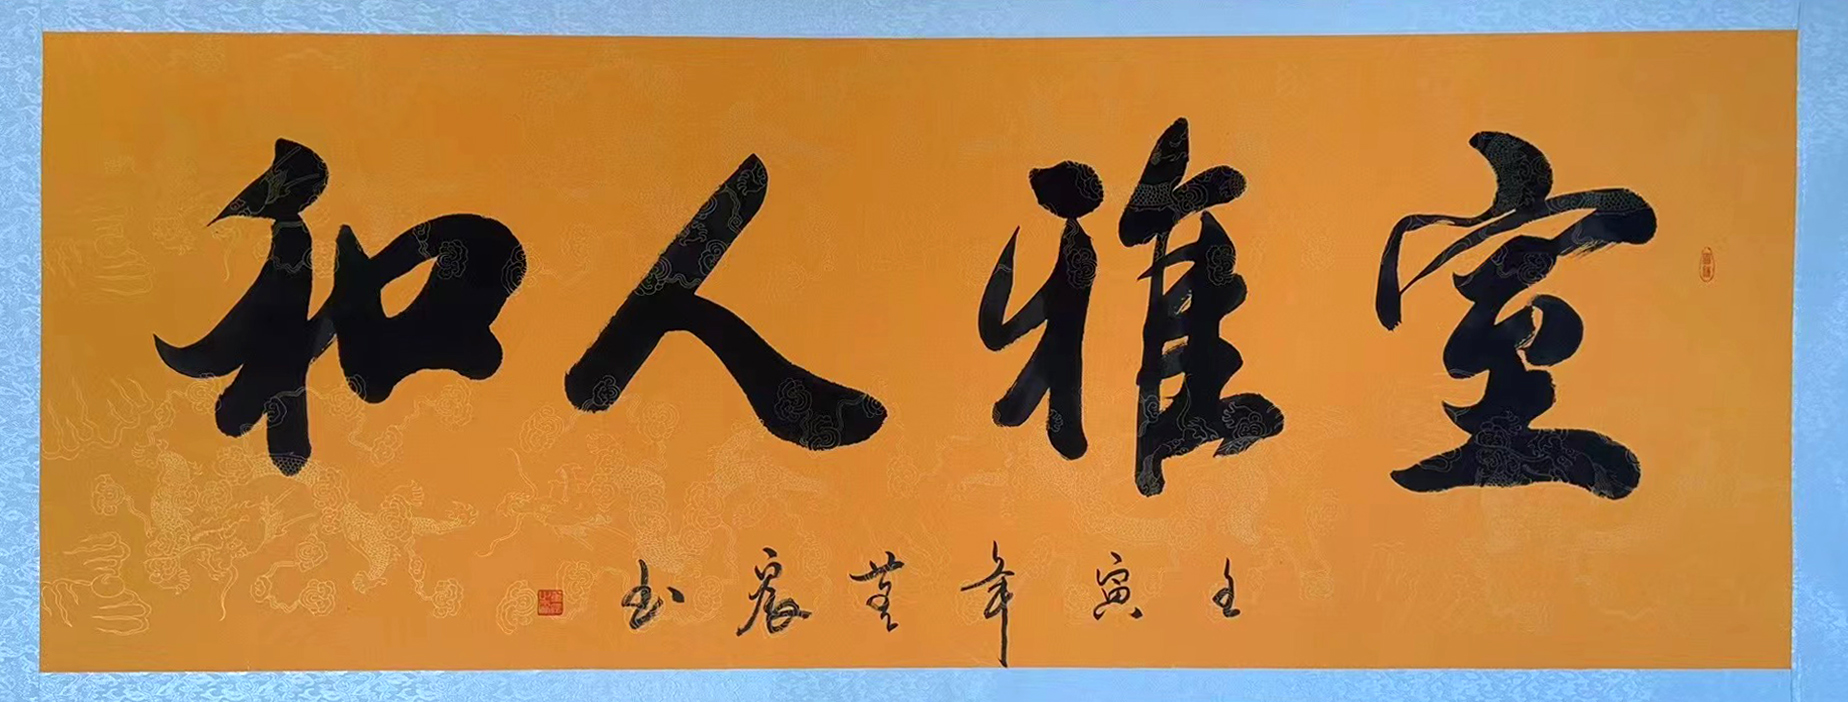 室雅人和
壬寅年墓宸书